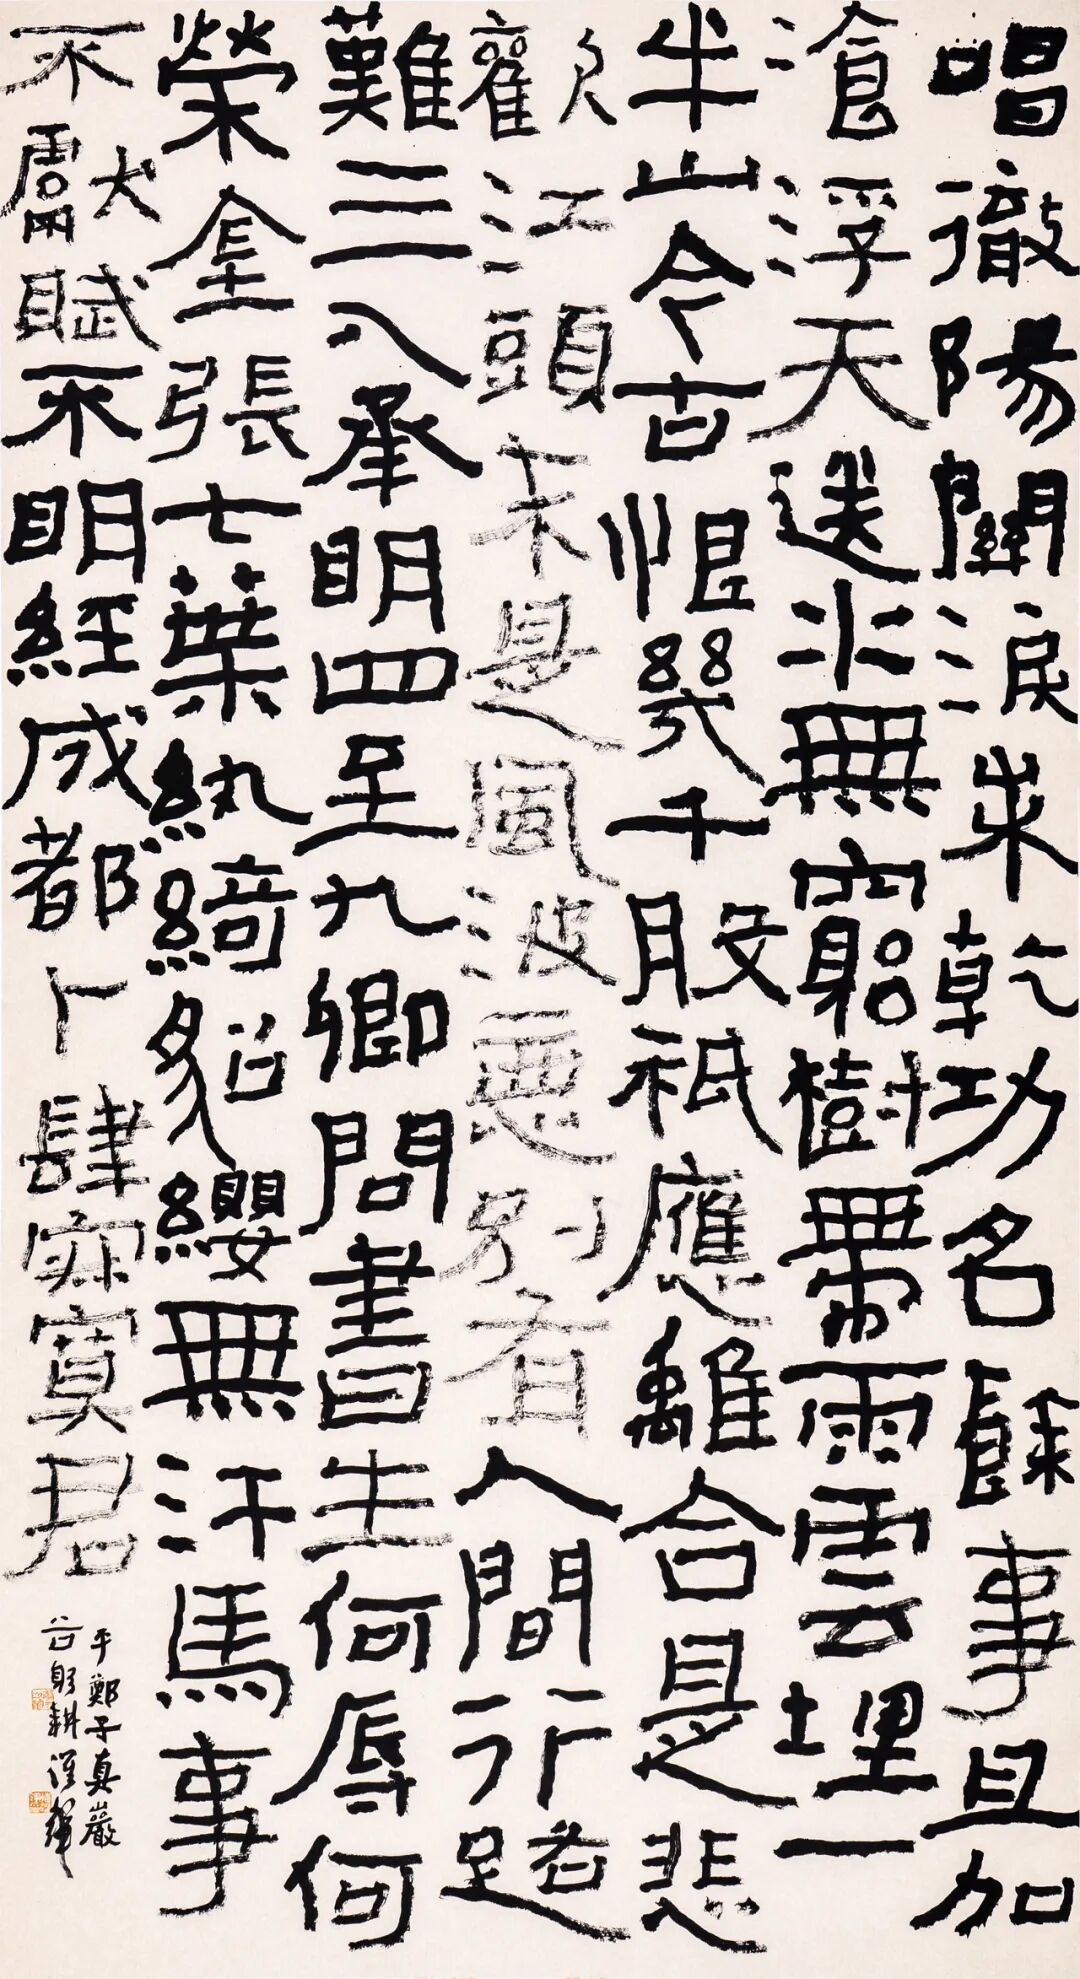 唱徹陽關淚未乾功名餘事且加
湌浮天送水無窮樹帶雨雲埋一
半山今古恨幾千般祇應離合是悲
歡江頭未是風波惡別有人間行路
難三入承明四至九卿問書生何辱何
榮金張七葉紈綺貂纓無汗馬事
不獻賦不明經成都卜肆寂寞君
平鄭子真巖
谷躬耕